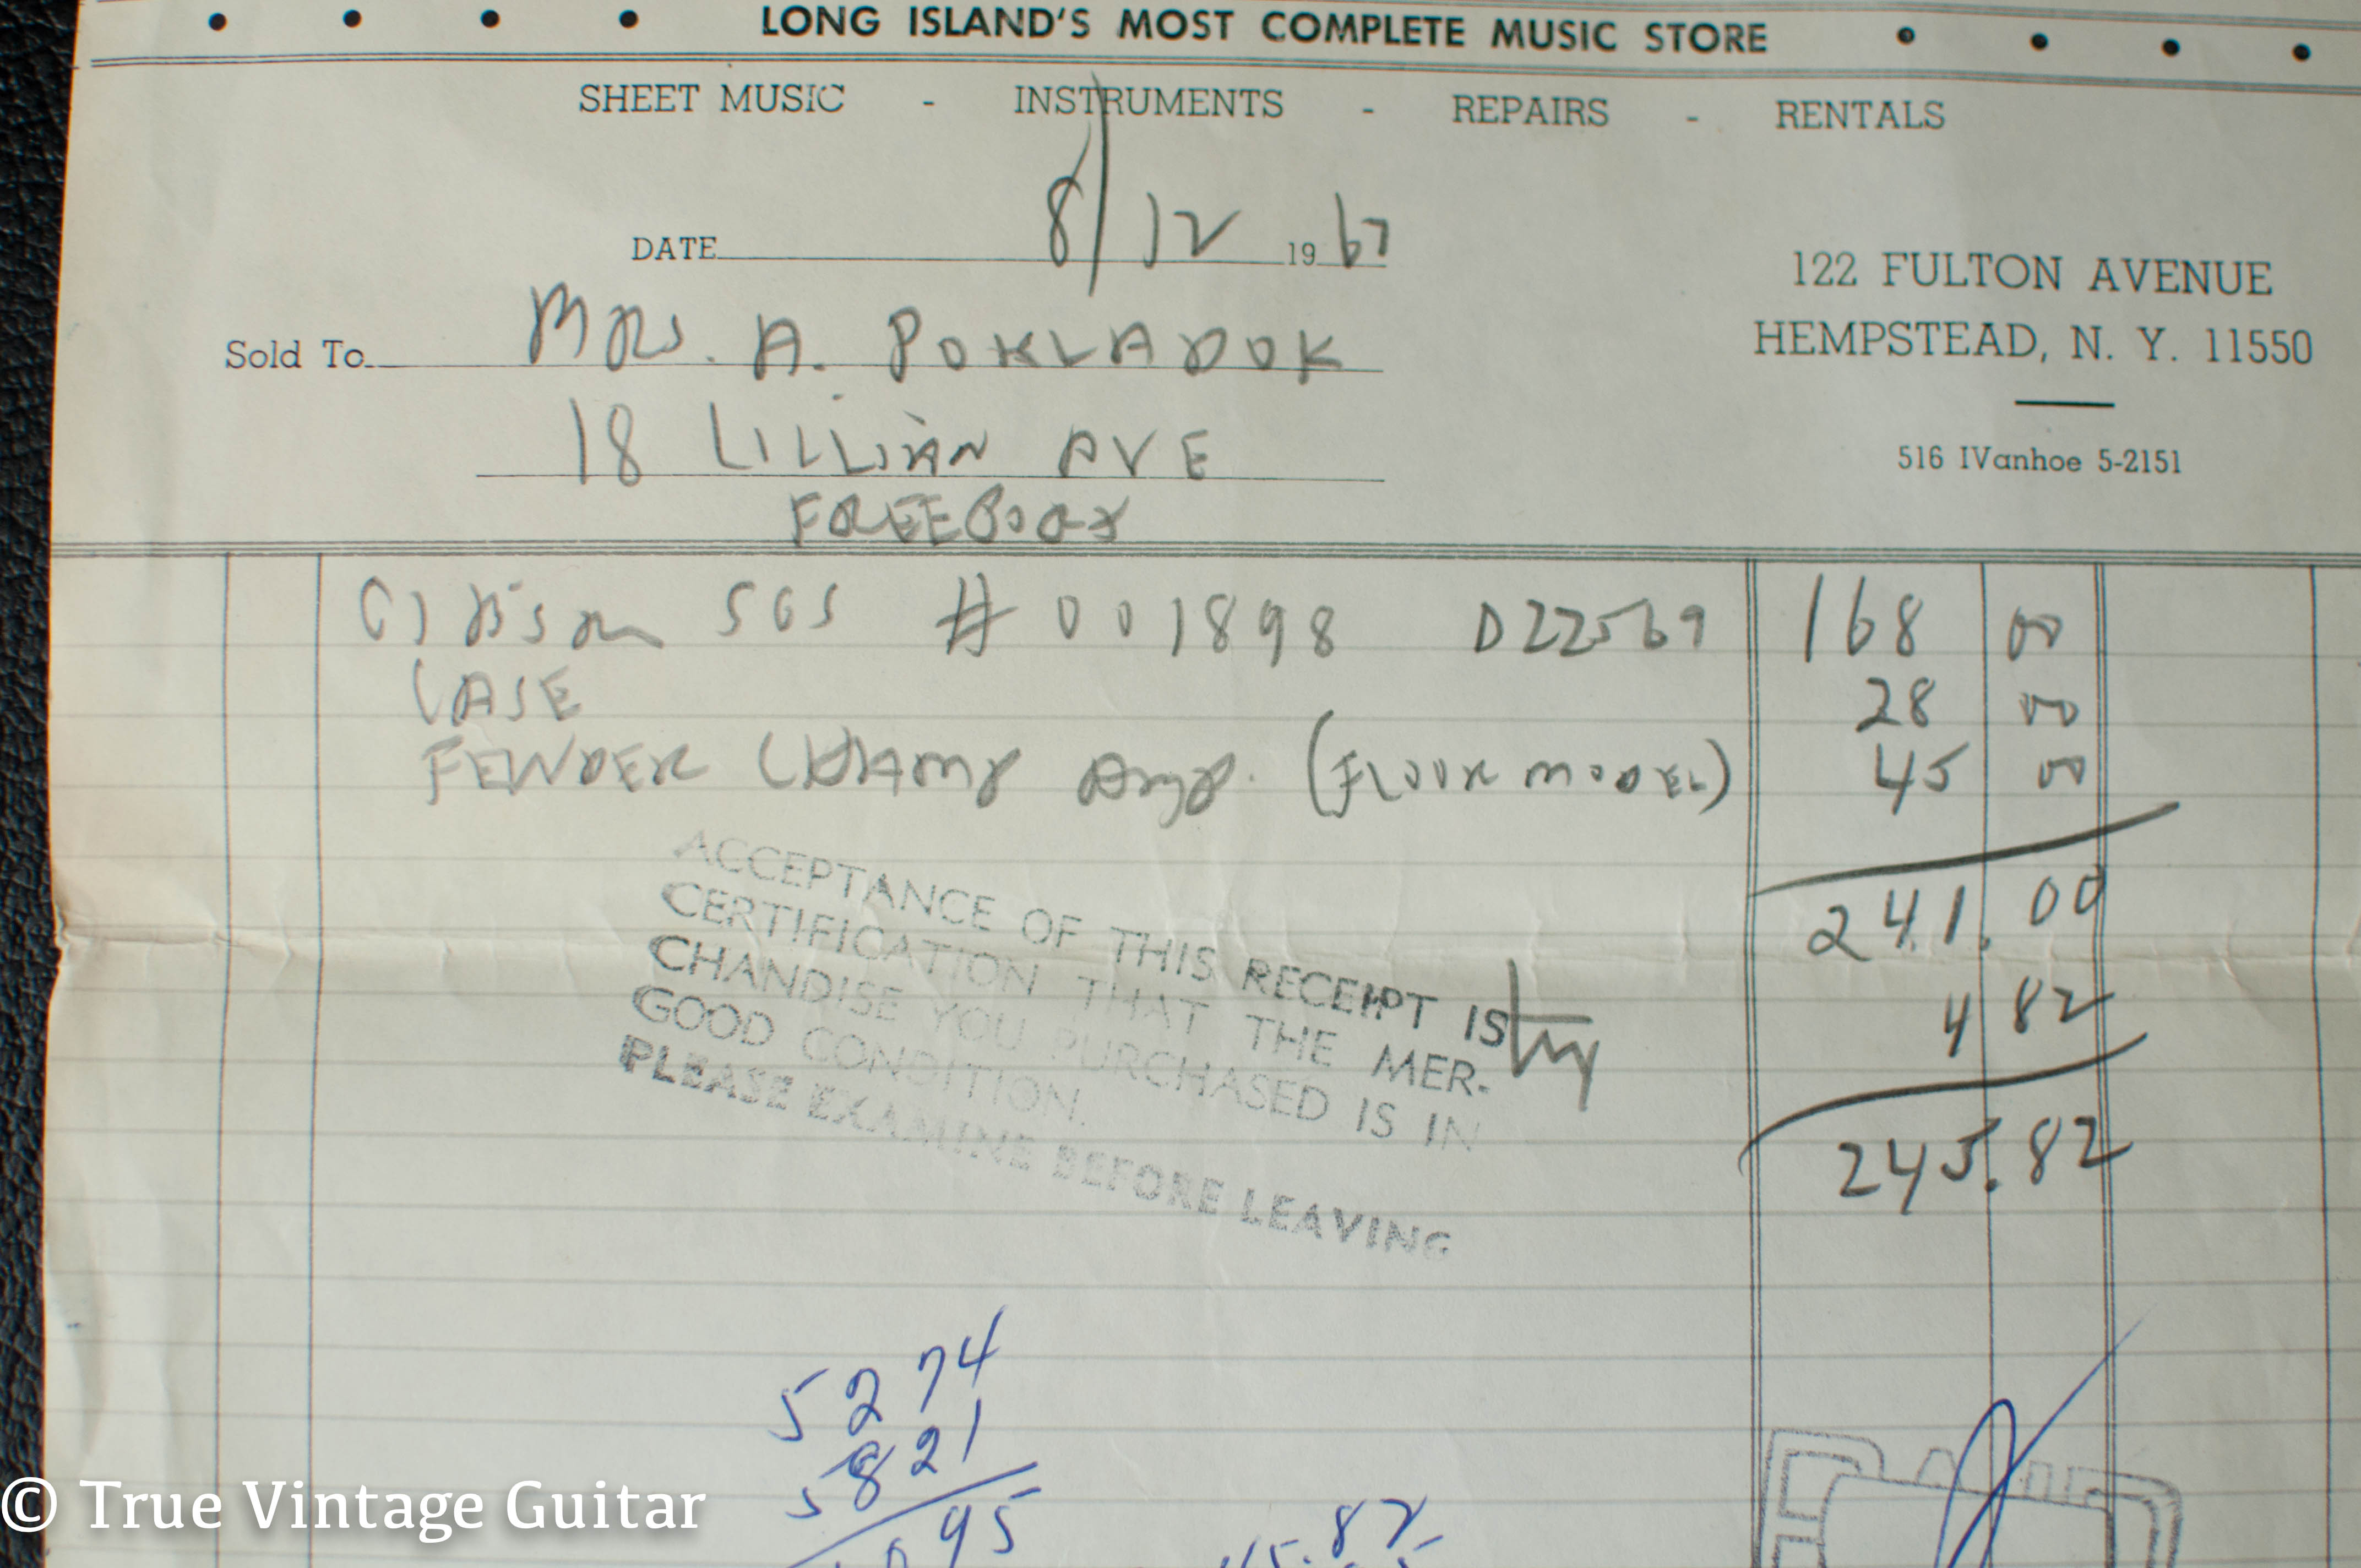 • • • • LONG ISLAND'S MOST COMPLETE MUSIC STORE • • • •
SHEET MUSIC - INSTRUMENTS - REPAIRS - RENTALS
DATE 8/12 19 67
122 FULTON AVENUE
HEMPSTEAD, N. Y. 11550
516 IVanhoe 5-2151
Sold To MRS. A. POKLADOK
18 LILLIAN AVE
FREEPORT
Gibson SGS # 001898 D22569 168 00
CASE 28 00
FENDER CHAMP Amp. (FLOOR MODEL) 45 00
241.00
4 82
245.82
ACCEPTANCE OF THIS RECEIPT IS
CERTIFICATION THAT THE MER-
CHANDISE YOU PURCHASED IS IN
GOOD CONDITION.
PLEASE EXAMINE BEFORE LEAVING
5274
5821
95
45.82
© True Vintage Guitar